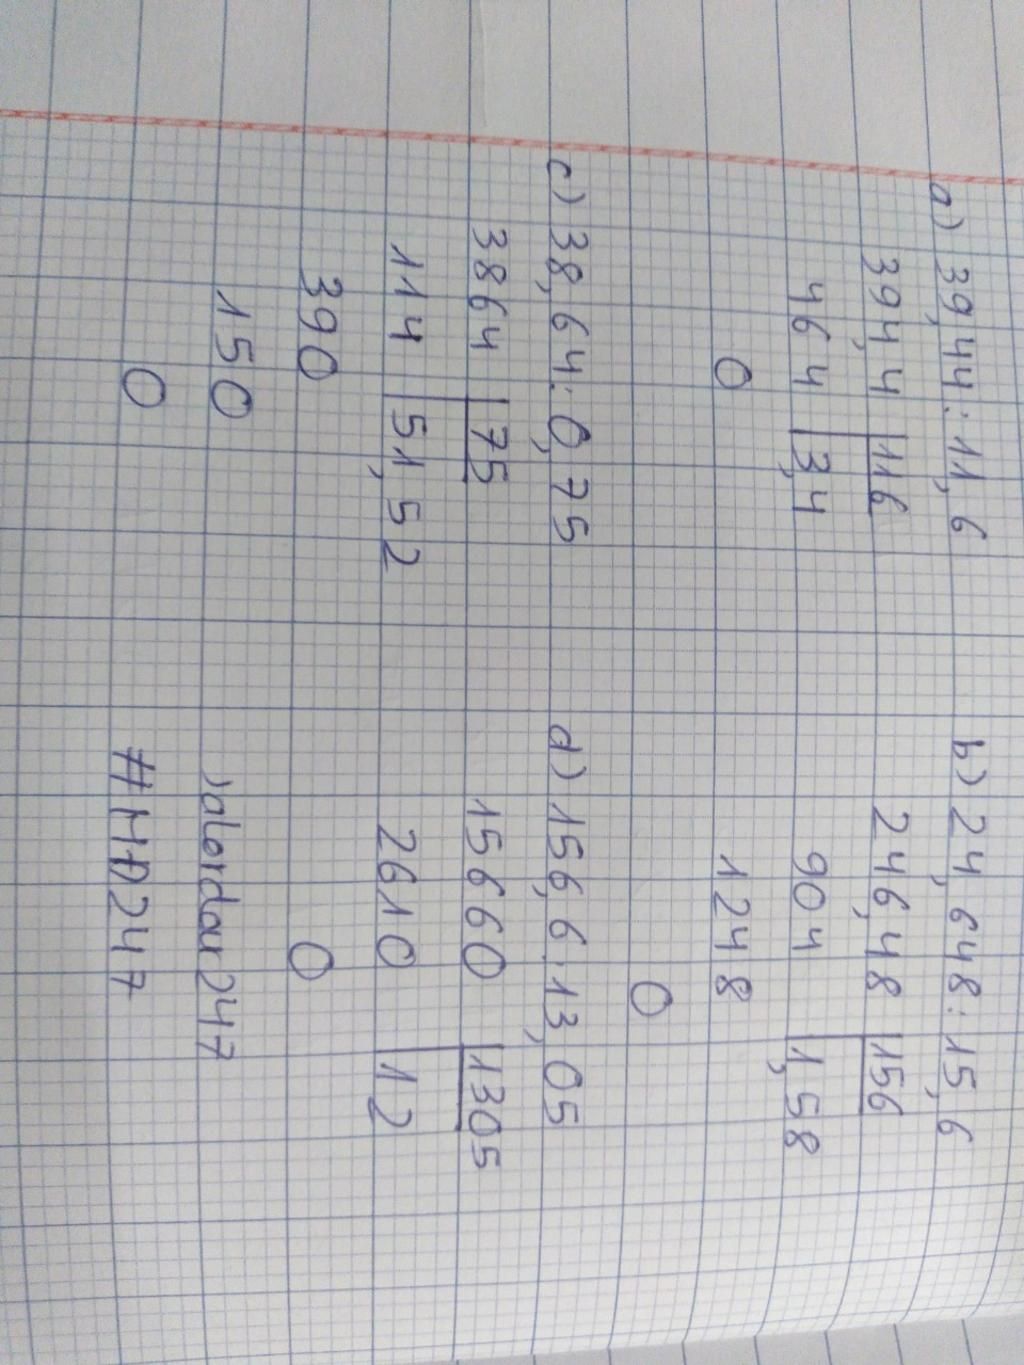 a) 39,44 : 11,6
39,4,4 | 116
464 | 3,4
0
b) 24,648 : 15,6
246,48 | 156
904 | 1,58
1248
0
c) 38,64 : 0,75
3864 | 75
114 | 51,52
390
150
0
d) 156,6 : 13,05
15660 | 1305
2610 | 12
0
)alordau247
#MĐ247